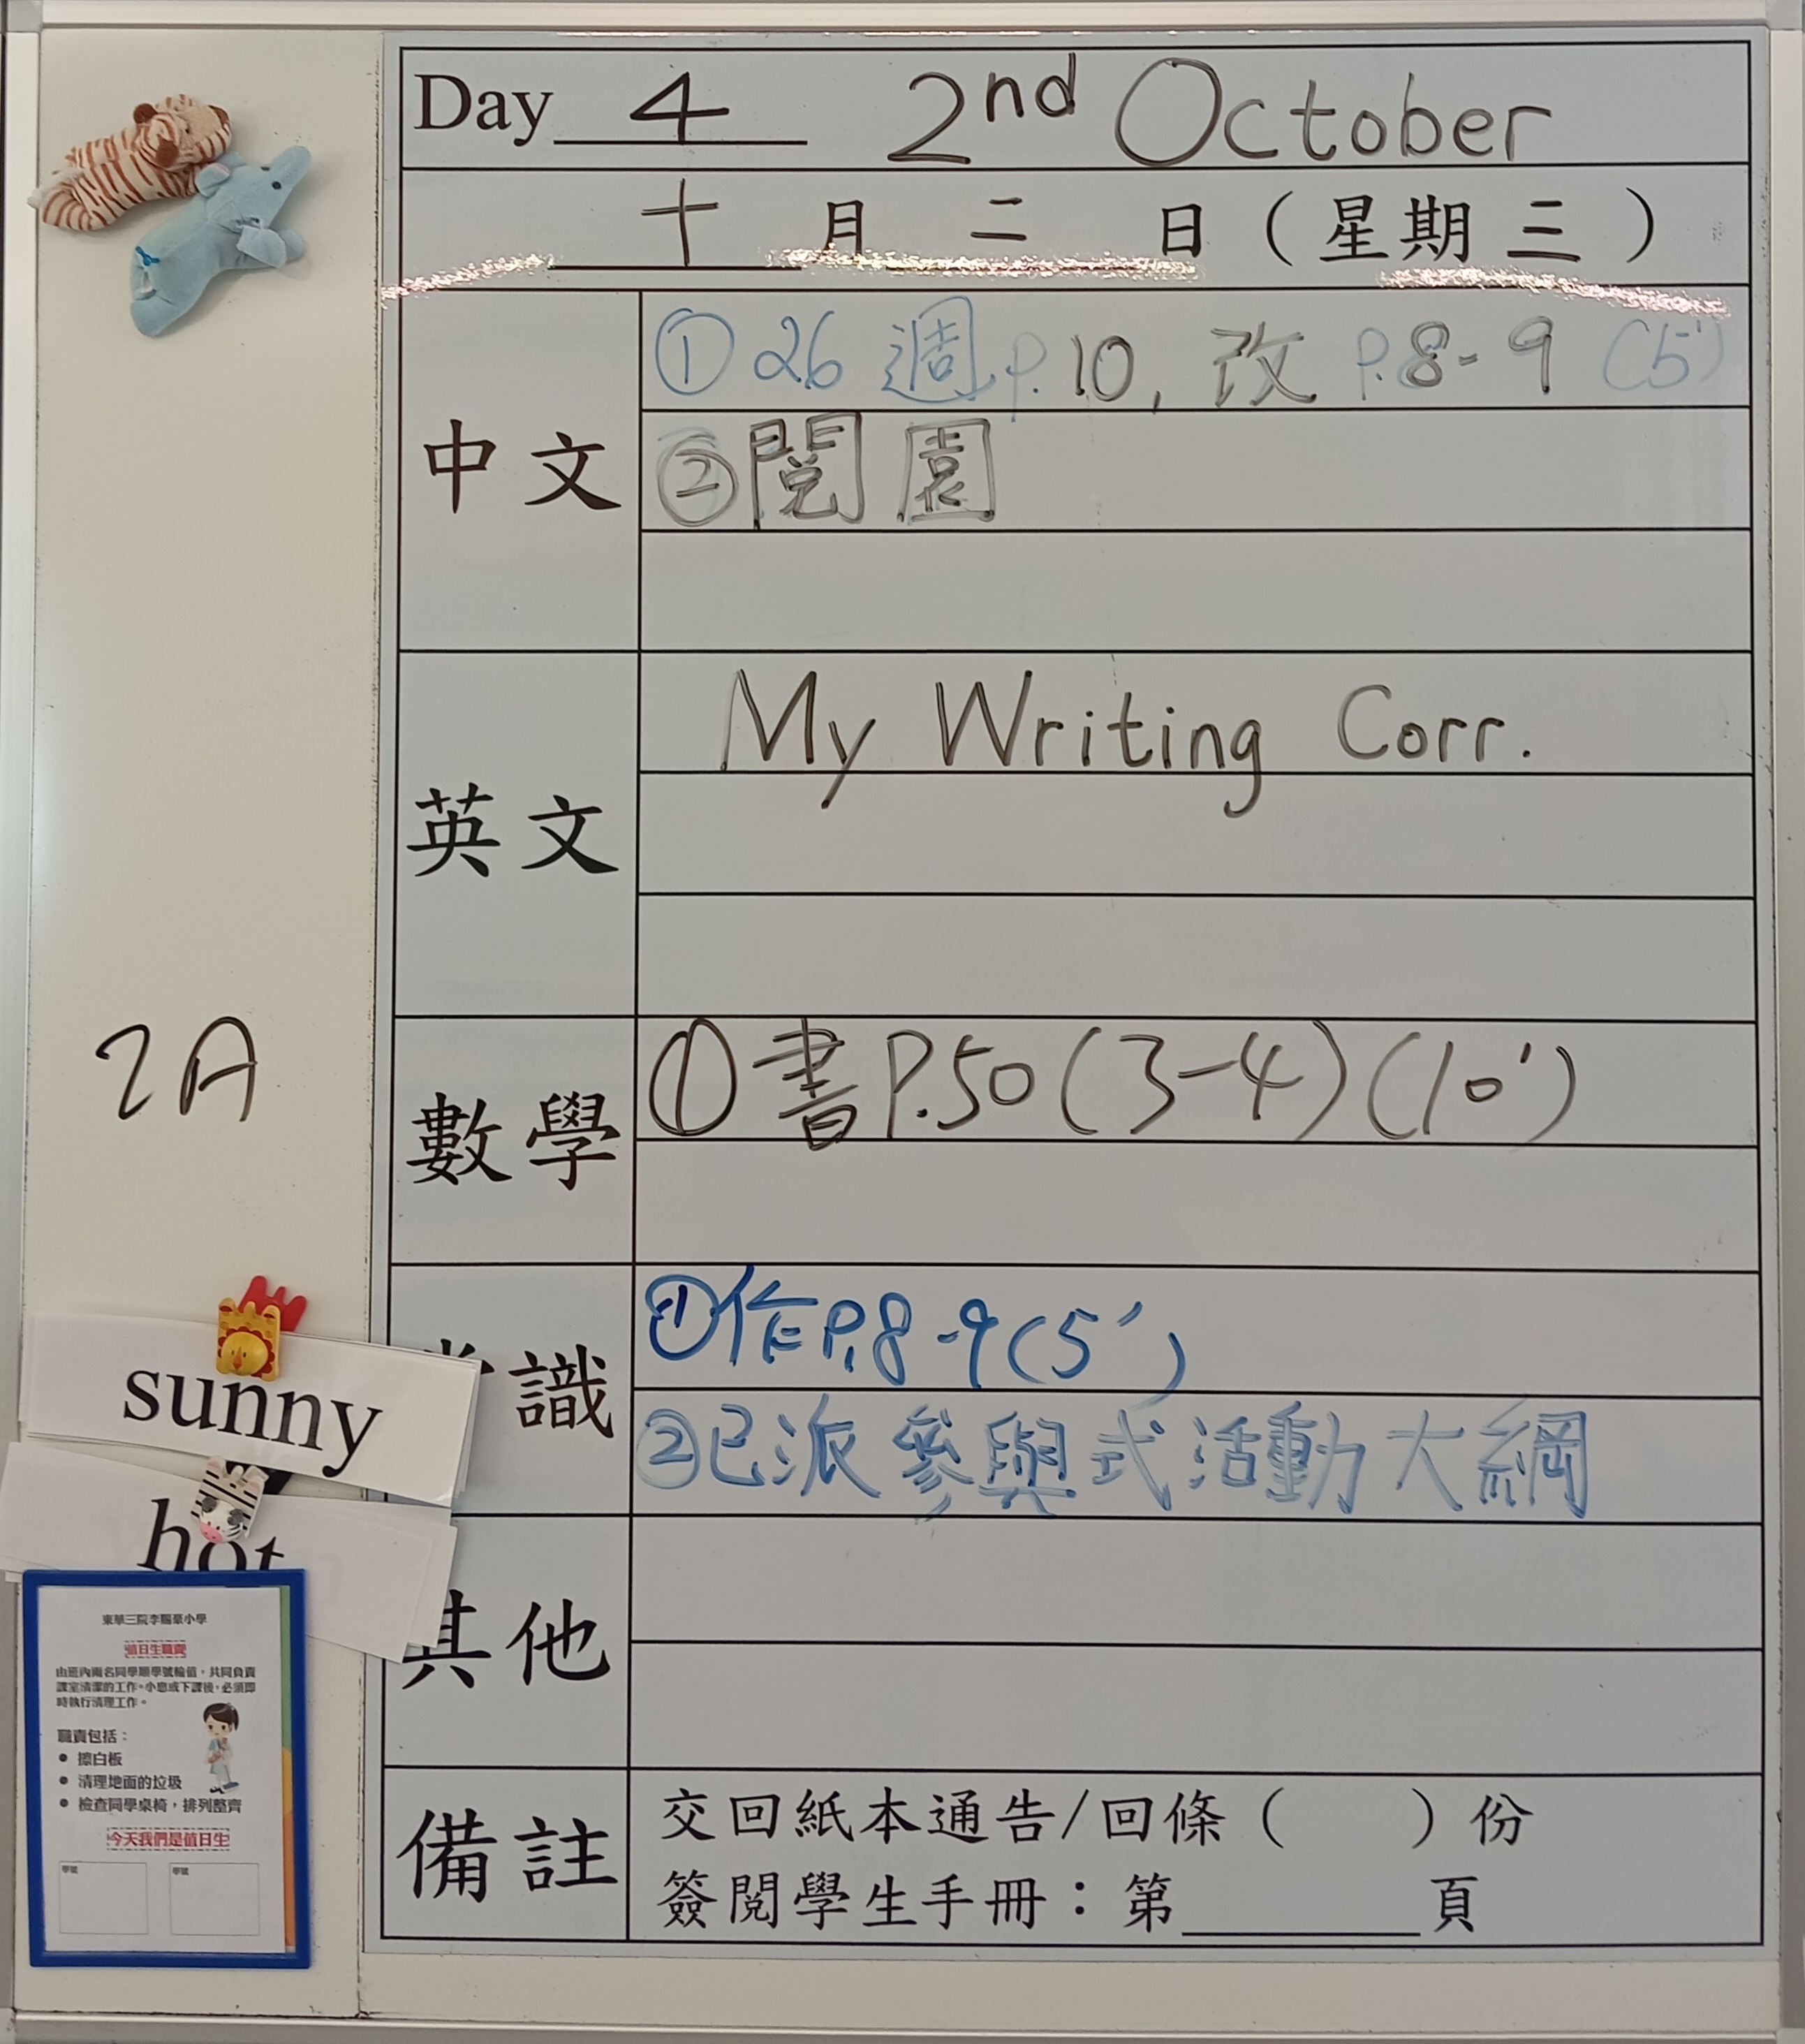 Day 4 2nd October
十 月 二 日 ( 星期 三 )
中文
① 26 週 p.10, 改 P.8-9 (5')
② 閱園
英文
My Writing Corr.
2A
數學
① 書 P.50 (3-4) (10')
識
① 作 P.8-9 (5')
② 已派參與式活動大綱
sunny
hot
其他
備註
交回紙本通告/回條 ( ) 份
簽閱學生手冊：第______頁
東華三院李賜豪小學
值日生職責
由班內兩名同學順學號輪值，共同負責
課室清潔的工作。小息或下課後，必須即
時執行清理工作。
職責包括：
● 擦白板
● 清理地面的垃圾
● 檢查同學桌椅，排列整齊
今天我們是值日生
學號 學號